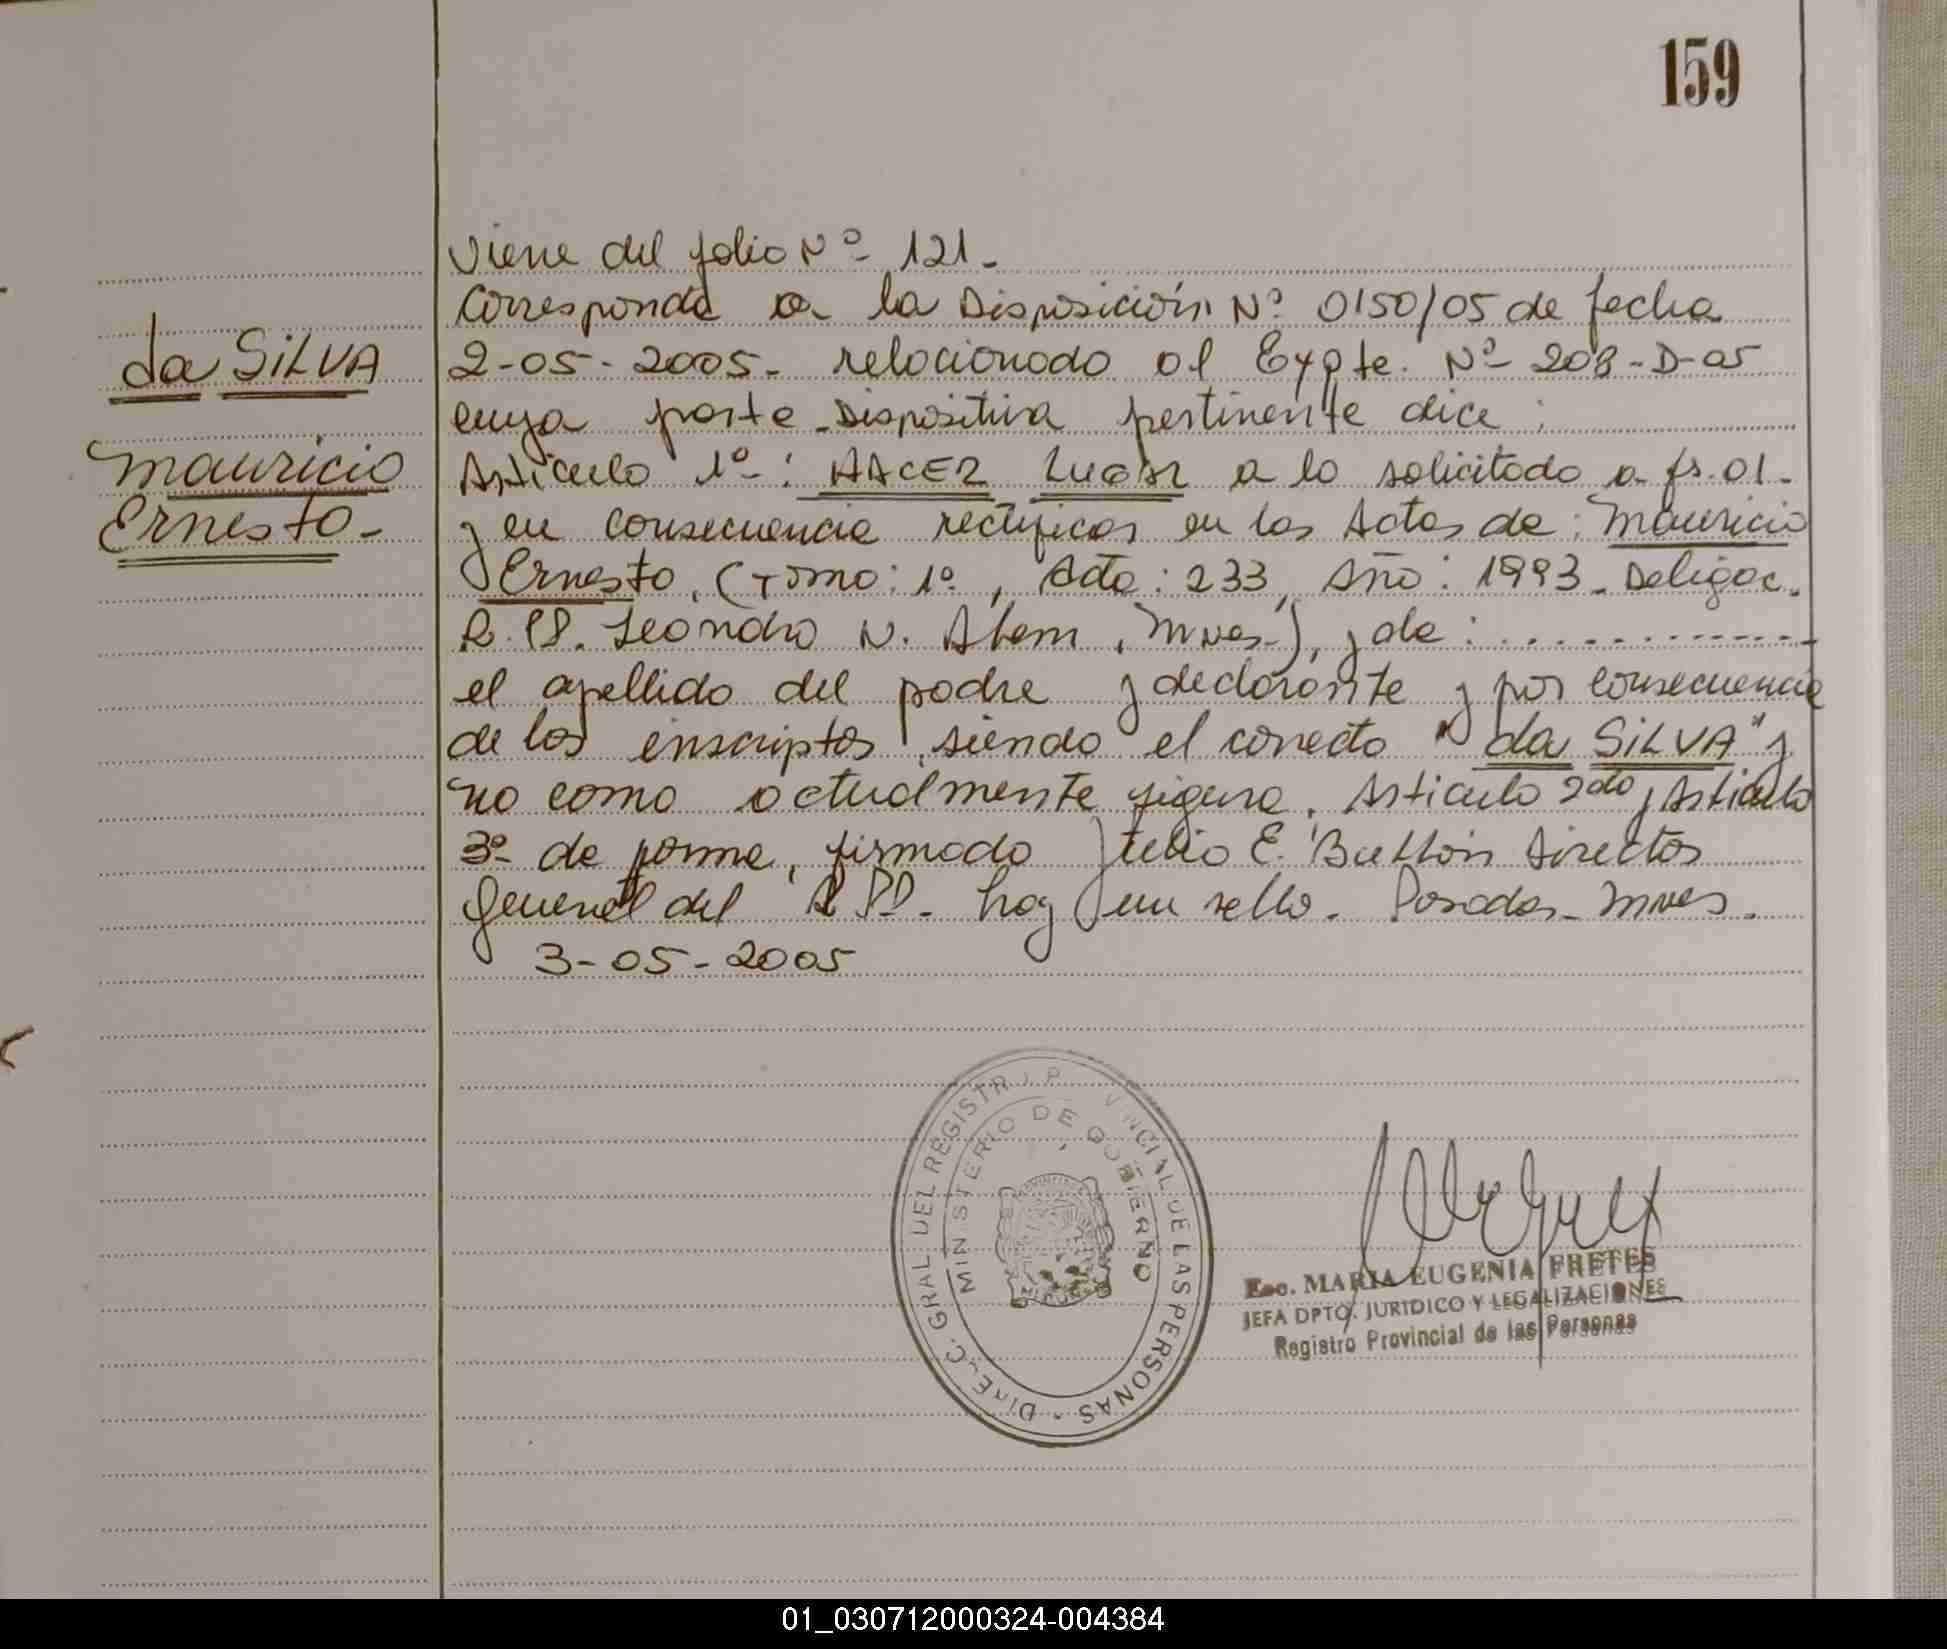 159
Viene del folio Nº 121.
Corresponde a la Disposición Nº 0150/05 de fecha
da SiLVA
2-05-2005. relacionado al Expte. Nº 208-D-05
cuya parte Dispositiva pertinente dice:
Mauricio
Articulo 1º: HACER LUGAR a lo solicitado a fs. 01.
Ernesto-
y en consecuencia rectificar en las Actas de: Mauricio
Ernesto, (Tomo: 1º, Acta: 233, Año: 1993. Delegac.
R.P.P. Leandro N. Alem, Mnes.), y de: ..............
el apellido del padre y declarante y por consecuencia
de los inscriptos, siendo el correcto "da SiLVA" y
no como actualmente figura. Articulo 2do y Articulo
3º de forma, firmado E. Director
General del R.P.P. hay un sello. Posadas-Mnes.
3-05-2005
DIREC. GRAL. DEL REGISTRO PROVINCIAL DE LAS PERSONAS
MINISTERIO DE GOBIERNO
Esc. MARIA EUGENIA FRETES
JEFA DPTO. JURIDICO Y LEGALIZACIONES
Registro Provincial de las Personas
01_030712000324-004384